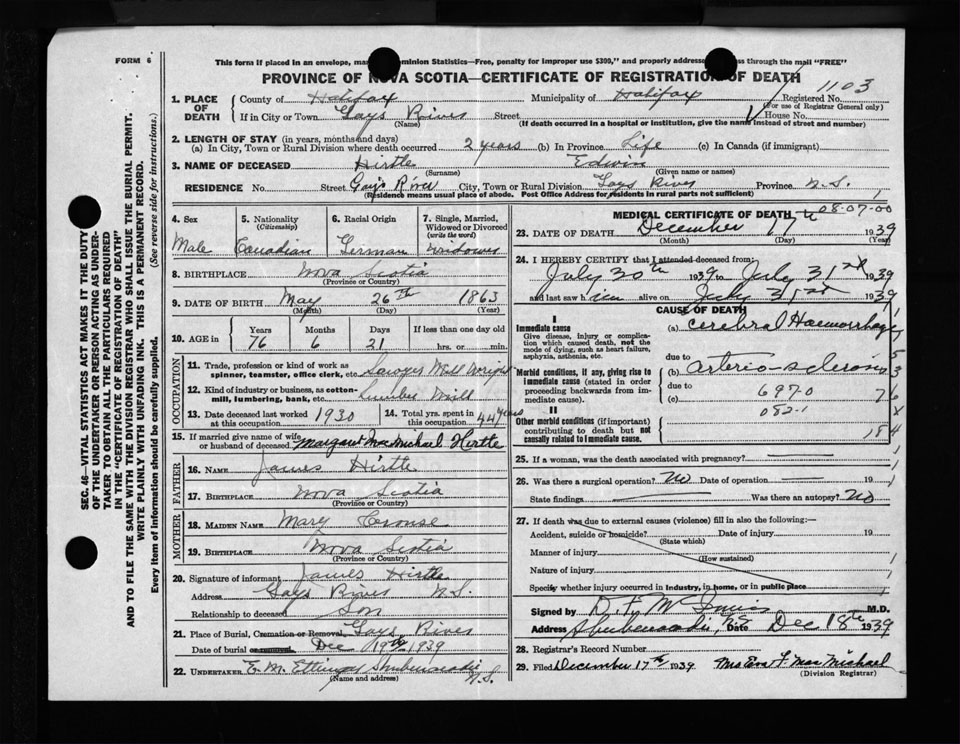 FORM 6
This form if placed in an envelope, ma ominion Statistics—Free, penalty for improper use $300," and properly addres ss through the mail "FREE"
PROVINCE OF NOVA SCOTIA—CERTIFICATE OF REGISTRATION OF DEATH
1103
1. PLACE OF DEATH
County of Halifax Municipality of Halifax Registered No.
(For use of Registrar General only)
If in City or Town Gays River Street House No.
(Name) (If death occurred in a hospital or institution, give the name instead of street and number)
2. LENGTH OF STAY (in years, months and days)
(a) In City, Town or Rural Division where death occurred 2 years (b) In Province Life (c) In Canada (if immigrant)
3. NAME OF DECEASED Hirtle Edwin
(Surname) (Given name or names)
RESIDENCE No. Street Gays River City, Town or Rural Division Gays River Province N.S.
(Residence means usual place of abode. Post Office Address for residents in rural parts not sufficient)
4. Sex Male
5. Nationality (Citizenship) Canadian
6. Racial Origin German
7. Single, Married, Widowed or Divorced (write the word) Widower
8. BIRTHPLACE Nova Scotia
(Province or Country)
9. DATE OF BIRTH May 26th 1863
(Month) (Day) (Year)
10. AGE in Years Months Days If less than one day old
76 6 21 hrs. or min.
OCCUPATION
11. Trade, profession or kind of work as spinner, teamster, office clerk, etc. Sawyer Mill Wright
12. Kind of industry or business, as cotton-mill, lumbering, bank, etc. Lumber Mill
13. Date deceased last worked at this occupation 1930
14. Total yrs. spent in this occupation 44 years
15. If married give name of wife or husband of deceased Margaret MacMichael Hirtle
FATHER
16. NAME James Hirtle
17. BIRTHPLACE Nova Scotia
(Province or Country)
MOTHER
18. MAIDEN NAME Mary Crouse
19. BIRTHPLACE Nova Scotia
(Province or Country)
20. Signature of informant James Hirtle
Address Gays River N.S.
Relationship to deceased Son
21. Place of Burial, Cremation or Removal Gays River
Date of burial or removal Dec 19th 1939
22. UNDERTAKER E. M. Ettinger Shubenacadie N.S.
(Name and address)
MEDICAL CERTIFICATE OF DEATH
08-07-00
23. DATE OF DEATH December 17th 1939
(Month) (Day) (Year)
24. I HEREBY CERTIFY that I attended deceased from:
July 30th 1939 to July 31st 1939
and last saw him alive on July 31st 1939
CAUSE OF DEATH
I
Immediate cause
Give disease, injury or complication which caused death, not the mode of dying, such as heart failure, asphyxia, asthenia, etc.
(a) Cerebral Haemorrhage
due to
Morbid conditions, if any, giving rise to immediate cause (stated in order proceeding backwards from immediate cause).
(b) arterio-sclerosis
due to
(c) 697-0
082-1
II
Other morbid conditions (if important) contributing to death but not causally related to immediate cause.
184
25. If a woman, was the death associated with pregnancy?
26. Was there a surgical operation? No Date of operation 19
State findings Was there an autopsy? No
27. If death was due to external causes (violence) fill in also the following:—
Accident, suicide or homicide? Date of injury 19
(State which)
Manner of injury
(How sustained)
Nature of injury
Specify whether injury occurred in industry, in home, or in public place
Signed by M.D.
Address Shubenacadie, N.S. Date Dec 18th 1939
28. Registrar's Record Number
29. Filed December 17th 1939. Mrs Eva F. MacMichael
(Division Registrar)
SEC. 46—VITAL STATISTICS ACT MAKES IT THE DUTY
OF THE UNDERTAKER OR PERSON ACTING AS UNDER-
TAKER TO OBTAIN ALL THE PARTICULARS REQUIRED
IN THE "CERTIFICATE OF REGISTRATION OF DEATH"
AND TO FILE THE SAME WITH THE DIVISION REGISTRAR WHO SHALL ISSUE THE BURIAL PERMIT.
WRITE PLAINLY WITH UNFADING INK. THIS IS A PERMANENT RECORD.
Every item of Information should be carefully supplied. (See reverse side for instructions.)